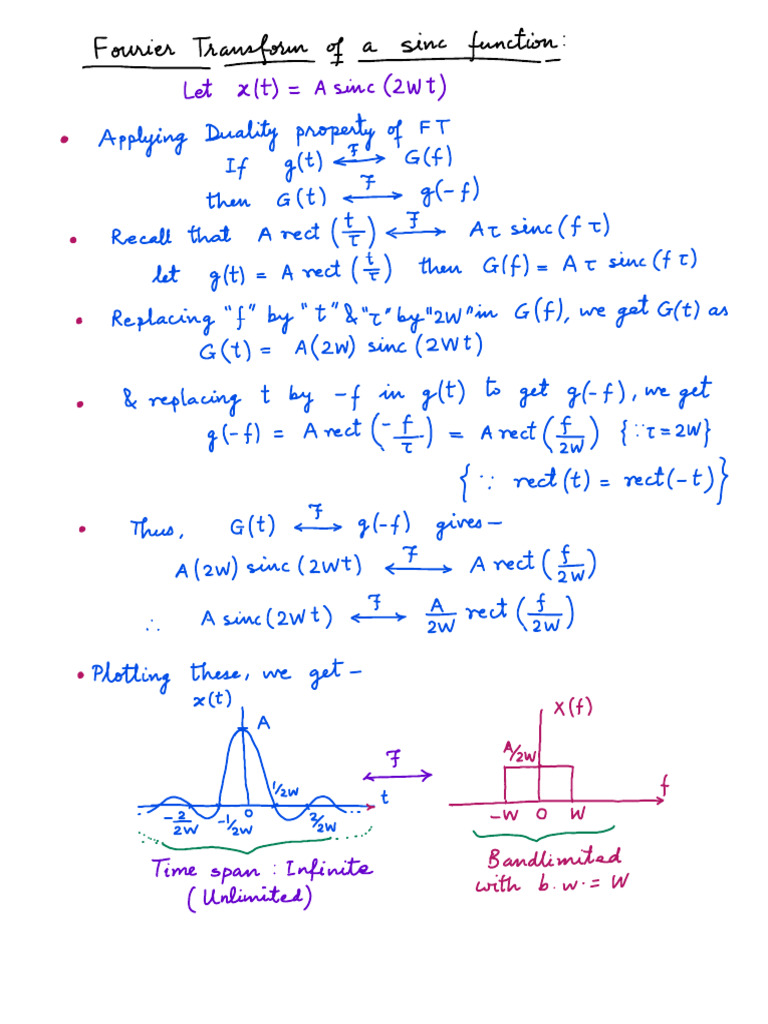 Fourier Transform of a sinc function:
Let x(t) = A sinc (2Wt)
• Applying Duality property of FT
If g(t) ⟷ᶠ G(f)
then G(t) ⟷ᶠ g(-f)
• Recall that A rect (t/τ) ⟷ᶠ Aτ sinc (f τ)
let g(t) = A rect (t/τ) then G(f) = Aτ sinc (f τ)
• Replacing "f" by "t" & "τ" by "2W" in G(f), we get G(t) as
G(t) = A(2W) sinc (2Wt)
• & replacing t by -f in g(t) to get g(-f), we get
g(-f) = A rect (-f/τ) = A rect (f/2W) {∵ τ = 2W}
{∵ rect (t) = rect (-t)}
• Thus, G(t) ⟷ᶠ g(-f) gives -
A(2W) sinc (2Wt) ⟷ᶠ A rect (f/2W)
∴ A sinc (2Wt) ⟷ᶠ A/2W rect (f/2W)
• Plotting these, we get -
x(t)
A
-2/2W -1/2W 0 1/2W 2/2W t
F
X(f)
A/2W
-W 0 W f
Time span : Infinite
(Unlimited)
Bandlimited
with b.w. = W